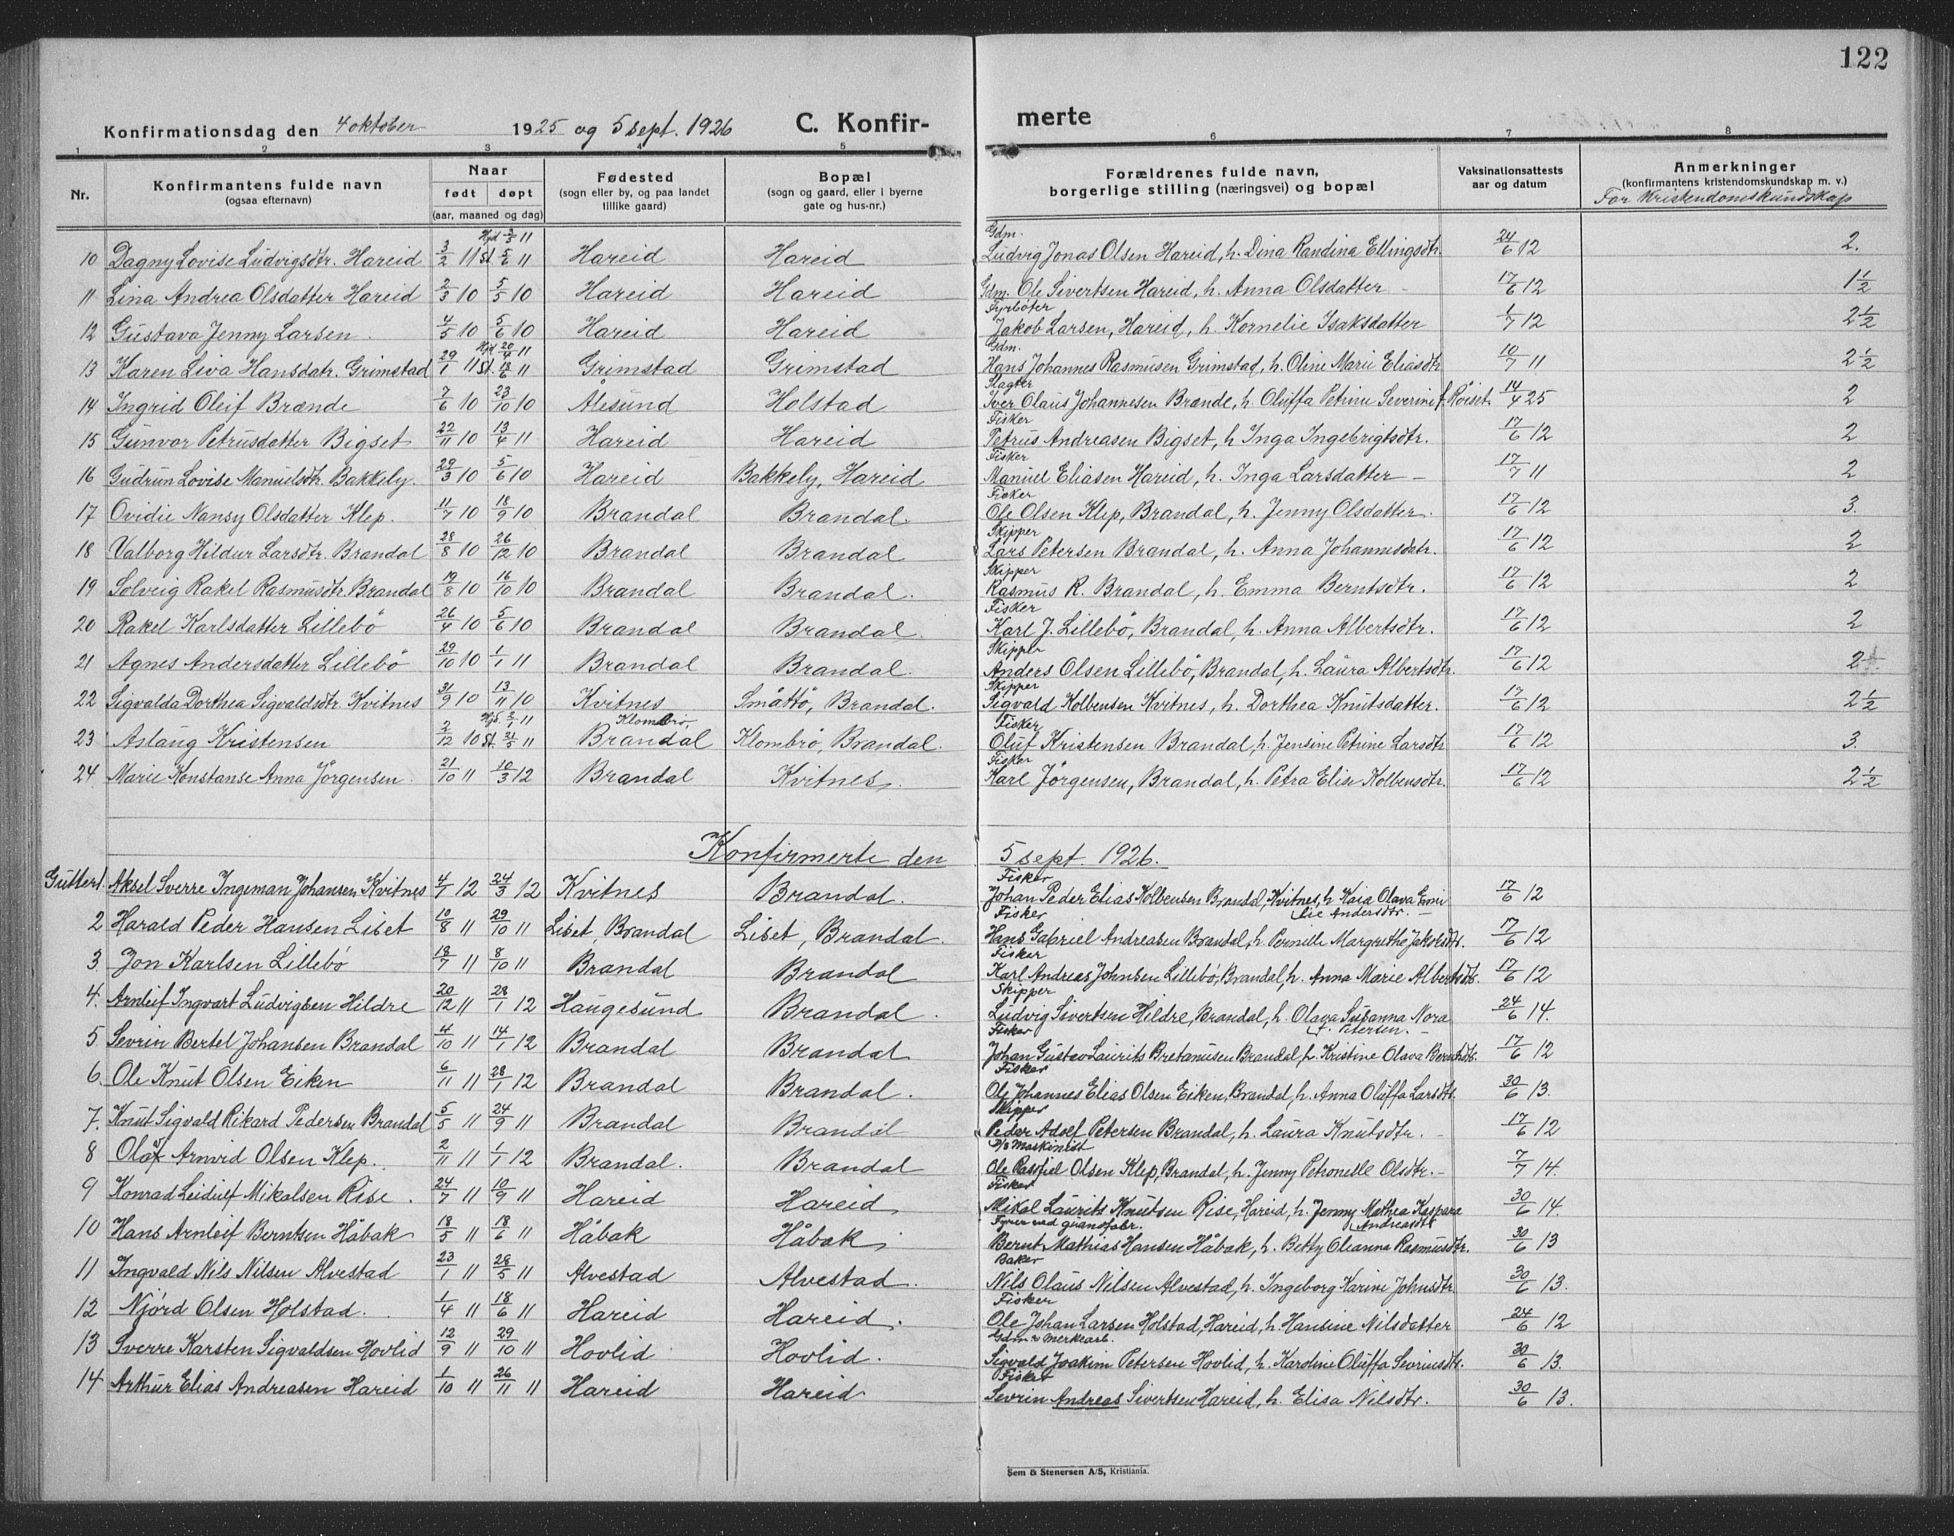 122
Konfirmationsdag den 4 oktober 1925 og 5 sept. 1926 C. Konfir- merte
1 2 3 4 5 6 7 8
Nr. Konfirmantens fulde navn (ogsaa efternavn) Naar født døpt (aar, maaned og dag) Fødested (sogn eller by, og paa landet tillike gaard) Bopæl (sogn og gaard, eller i byerne gate og hus-nr.) Forældrenes fulde navn, borgerlige stilling (næringsvei) og bopæl Vaksinationsattests aar og datum Anmerkninger (konfirmantens kristendomskundskap m. v.)
For Kristendomskundskap
10 Dagny Lovise Ludvigsdtr. Hareid 3/2 11 Hjd 3/3 11 St. 5/6 11 Hareid Hareid Gdm. Ludvig Jonas Olsen Hareid, h. Dina Randina Ellingsdtr. 24/6 12 2.
11 Lina Andrea Olsdatter Hareid 2/3 10 5/5 10 Hareid Hareid Gdm. Ole Sivertsen Hareid, h. Anna Olsdatter 17/6 12 1 1/2
12 Gustava Jenny Larsen. 4/5 10 5/6 10 Hareid Hareid Fyrbøter Jakob Larsen, Hareid, h. Kornelie Isaksdatter 1/7 12 2 1/2
13 Karen Liva Hansdatr. Grimstad 29/1 11 Hjd. 20/4 11 St. 11 Grimstad Grimstad Gdm. Hans Johannes Rasmusen Grimstad, h. Oline Marie Eliasdtr 10/7 11 2 1/2
14 Ingrid Oleif Brænde 7/6 10 23/10 10 Ålesund Holstad Slagter Iver Olaus Johannesen Brænde, h. Oluffa Petrine Severine f. Røiset 14/4 25 2
15 Gunvor Petrusdatter Bigset 22/11 10 13/4 11 Hareid Hareid Fisker Petrus Andreasen Bigset, h. Inga Ingebrigtsdtr. 17/6 12 2
16 Gudrun Lovise Manuelsdtr. Bakkely. 29/3 10 5/6 10 Hareid Bakkely, Hareid Fisker Manuel Eliasen Hareid, h. Inga Larsdatter 17/7 11 2
17 Ovidie Nansy Olsdatter Klep. 11/7 10 18/9 10 Brandal Brandal. Fisker Ole Olsen Klep, Brandal, h. Jenny Olsdatter. 17/6 12 3.
18 Valborg Hildur Larsdtr. Brandal 28/8 10 26/12 10 Brandal Brandal Skipper Lars Petersen Brandal, h. Anna Johannesdatr. 17/6 12 2
19 Solveig Rakel Rasmusdtr. Brandal 19/8 10 16/10 10 Brandal Brandal. Skipper Rasmus R. Brandal, h. Emma Berntsdtr. 17/6 12 2
20 Rakel Karlsdatter Lillebö 26/4 10 5/6 10 Brandal Brandal. Fisker Karl J. Lillebö, Brandal, h. Anna Albertsdtr. 17/6 12 2
21 Agnes Andersdatter Lillebö 29/10 10 1/1 11 Brandal Brandal. Skipper Anders Olsen Lillebö, Brandal, h. Laura Albertsdtr. 17/6 12 2
22 Sigvalda Dorthea Sigvaldsdtr. Kvitnes 31/9 10 13/11 10 Kvitnes Småttö, Brandal. Skipper Sigvald Kolbensen Kvitnes, h. Dorthea Knutsdatter. 17/6 12 2 1/2
23 Aslaug Kristensen 2/12 10 Hjd. 2/1 11 St. 21/5 11 Klombrö, Brandal Klombrö, Brandal. Fisker Oluf Kristensen Brandal, h. Jensine Petrine Larsdtr 17/6 12 3.
24 Marie Konstanse Anna Jörgensen. 21/10 11 10/3 12 Brandal Kvitnes. Fisker Karl Jörgensen, Brandal, h. Petra Elise Kolbensdtr. 17/6 12 2 1/2
Konfirmerte den 5 sept. 1926.
Gutter 1. Aksel Sverre Ingeman Johansen Kvitnes 4/1 12 24/3 12 Kvitnes Brandal. Fisker Johan Peder Elias Kolbensen Brandal, Kvitnes, h. Kaia Olava Emilie Andersdtr. 17/6 12
2 Harald Peder Hansen Liset 10/8 11 29/10 11 Liset, Brandal Liset, Brandal. Fisker Hans Gabriel Andreasen Brandal, h. Pernille Margrethe Jakobsdtr. 17/6 12
3. Jon Karlsen Lillebö 18/7 11 8/10 11 Brandal Brandal Fisker Karl Andreas Johnsen Lillebö, Brandal, h. Anna Marie Albertsdtr. 17/6 12
4. Arnleif Ingvart Ludvigsen Hildre 20/12 11 28/1 12 Haugesund Brandal. Skipper Ludvig Sivertsen Hildre, Brandal, h. Olava Susanna Nora f. Petersen. 24/6 14.
5 Sevrin Bertel Johansen Brandal 4/10 11 14/1 12 Brandal Brandal Fisker Johan Gustav Laurits Bretanusen Brandal, h. Kristine Olava Berntsdtr. 17/6 12
6. Ole Knut Olsen Eiken 6/11 11 28/1 12 Brandal Brandal. Fisker Ole Johannes Elias Olsen Eiken, Brandal, h. Anna Oluffa Larsdtr. 30/6 13.
7. Knut Sigvald Rikard Pedersen Brandal 5/5 11 24/9 11 Brandal Brandal Skipper Peder Adolf Petersen Brandal, h. Laura Knutsdtr. 17/6 12
8 Olaf Arnvid Olsen Klep. 2/11 11 1/1 12 Brandal. Brandal Maskinist Ole Olsen Klep, Brandal, h. Jenny Petonelle Olsdtr. 7/7 14.
9 Konrad Leidulf Mikalsen Rise. 24/7 11 10/9 11 Hareid Hareid Fisker Mikal Laurits Knutsen Rise, Hareid, h. Jenny Mathea Kaspara Andreasdtr 30/6 14.
10 Hans Arnleif Berntsen Håbak 18/5 11 18/6 11 Håbak Håbak Fyrer ved guanofabr. Bernt Mathias Hansen Håbak, h. Betty Oleanna Rasmusdtr. 30/6 13
11 Ingvald Nils Nilsen Alvestad 23/1 11 28/5 11 Alvestad Alvestad. Baker Nils Olaus Nilsen Alvestad, h. Ingeborg Karine Johnsdtr 30/6 13.
12 Njörd Olsen Holstad. 1/4 11 18/6 11 Hareid Hareid. Fisker Ole Johan Larsen Holstad, Hareid, h. Hansine Nilsdatter 24/6 12
13 Sverre Karsten Sigvaldsen Hovlid 12/9 11 29/10 11 Hovlid Hovlid. Gdm & Merkearb. Sigvald Joakim Petersen Hovlid, h. Karoline Oluffa Sevrinsdtr. 30/6 13.
14 Arthur Elias Andreasen Hareid 1/10 11 26/11 11 Hareid Hareid. Fisker Sevrin Andreas Sivertsen Hareid, h. Elisa Nilsdtr. 30/6 13.
Sem & Stenersen A/S, Kristiania.